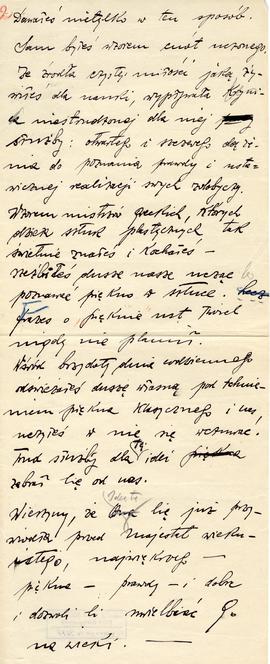 2.
Dawałeś nietylko w ten sposób.
Sam byłeś wzorem cnót uczonego.
Ze źródła czystej miłości jaką ży-
wiłeś dla nauki, wypływała
niestrudzonej dla niej
służby: otwartego i szczerego dąże-
nia do poznania prawdy i usta-
wicznej realizacji swych zdobyczy.
Wzorem mistrzów greckich, których
dzieła sztuk plastycznych tak
świetnie znałeś i kochałeś -
rzeźbiłeś dusze nasze ucząc
poznawać piękno w sztuce.
o piękne ust Twoich
nigdy nie plamił.
Wśród brzydoty dnia codziennego
odświeżałeś duszę własną pod tchnie-
niem piękna klasycznego i nas
uczyłeś w nie się wczuwać.
Trud służby dla tej idei piękna
zabrał Cię od nas.
Wierzymy, że Ona Cię już przy-
wiodła przed majestat wieku-
istego, największego -
piękna - prawdy - i dobra
i dozwoli Ci uwielbiać Go
na wieki. -